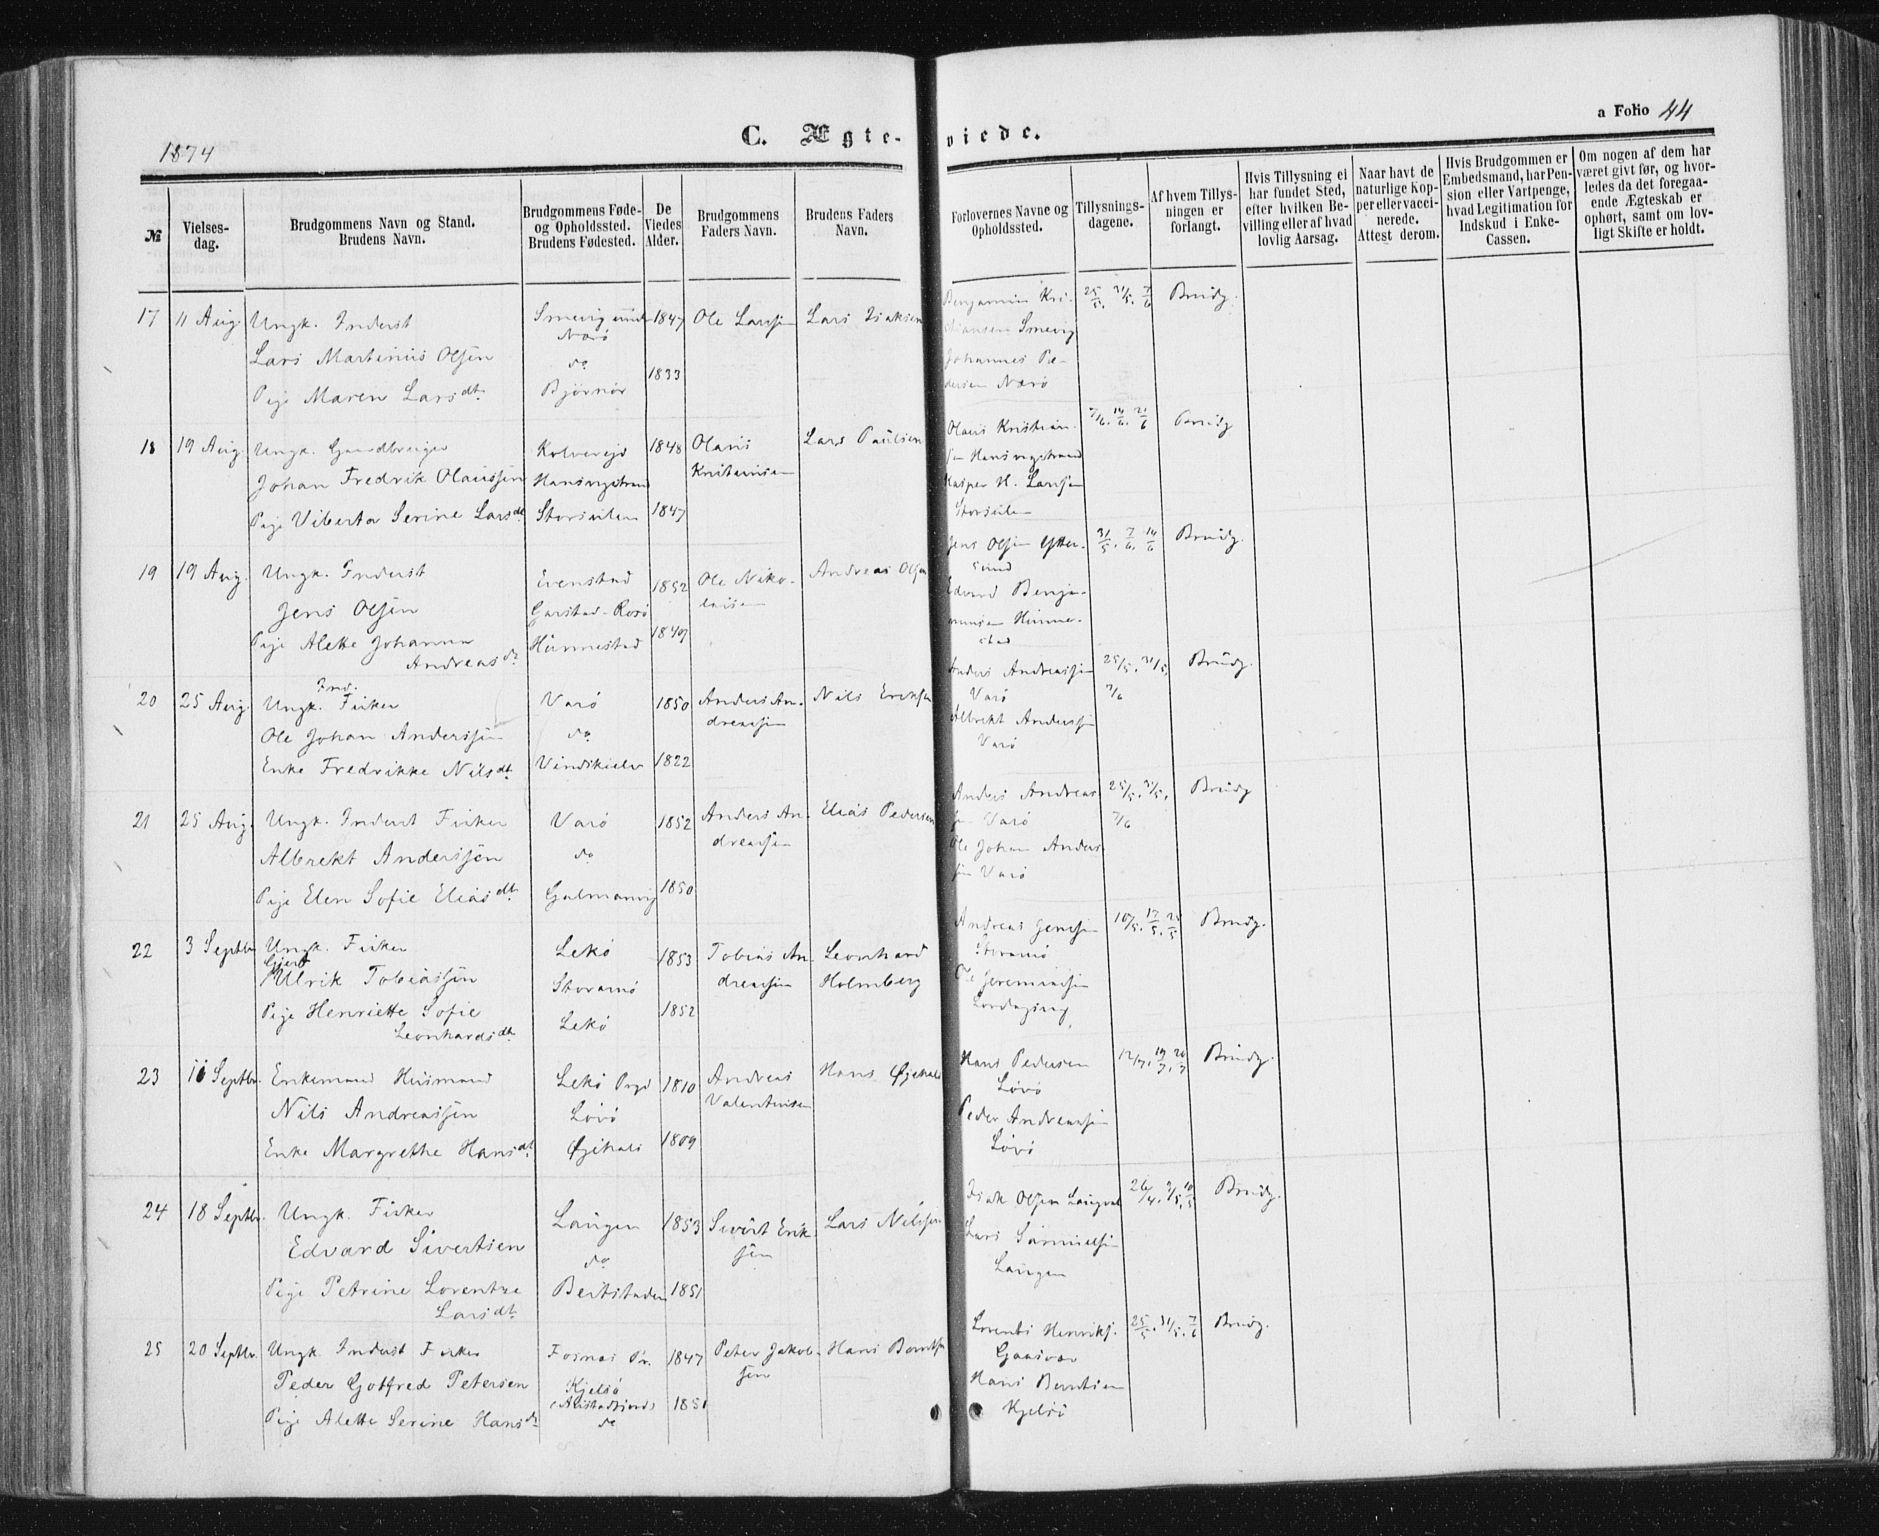 1874
C. Ægte-
viede.
a Folio 44
№
Vielses-
dag.
Brudgommens Navn og Stand.
Brudens Navn.
Brudgommens Føde-
og Opholdssted.
Brudens Fødested.
De
Viedes
Alder.
Brudgommens
Faders Navn.
Brudens Faders
Navn.
Forlovernes Navne og
Opholdssted.
Tillysnings-
dagene.
Af hvem Tillys-
ningen er
forlangt.
Hvis Tillysning ei
har fundet Sted,
efter hvilken Be-
villing eller af hvad
lovlig Aarsag.
Naar havt de
naturlige Kop-
per eller vacci-
nerede.
Attest derom.
Hvis Brudgommen er
Embedsmand, har Pen-
sion eller Vartpenge,
hvad Legitimation for
Indskud i Enke-
Cassen.
Om nogen af dem har
været givt før, og hvor-
ledes da det foregaa-
ende Ægteskab er
ophørt, samt om lov-
ligt Skifte er holdt.
17 11 Aug. Ungk. Inderst
Lars Martinius Olsen
Pige Maren Larsdt.
Smevig
Nærø
do
Bjørnør
1847
1833
Ole Larsen
Lars Isaksen
Benjamin Kri-
stiansen Smevig
Johannes Pe-
dersen Nærø
25/5. 31/5. 7/6
Brudg.
18 19 Aug. Ungk. Gaardbruger
Johan Fredrik Olaussen
Pige Viberta Serine Larsdt
Kolvereid
1848
1847
Olaus
Kristiansen
Lars Paulsen
Olaus Kristian-
sen
Kasper H. Larsen
7/6. 14/6. 21/6
Brudg
19 19 Aug. Ungk. Inderst
Jens Olsen
Pige Alette Johanna
Andreasdt
Evenstad
Garstad
Hunnestad
1852
1849
Ole Niko-
laisen
Andreas Olsen
Jens Olsen Ytter-
sund
Edvard Benja-
minsen Hunne-
stad
31/5. 7/6. 14/6
Brudg.
20 25 Aug. Ungk. Ind. Fisker
Ole Johan Anderssen
Enke Fredrikke Nilsdt.
Varø
do
1850
1822
Anders An-
dreassen
Nils Eriksen
Anders Andreassen
Varø
Albrekt Anderssen
Varø
25/5. 31/5.
7/6
Brudg.
21 25 Aug. Ungk. Inderst Fisker
Albrekt Anderssen
Pige Elen Sofie Eliasdt.
Varø
do
1852
1850
Anders An-
dreassen
Elias Pedersen
Anders Andreas-
sen Varø
Ole Johan Anders-
sen Varø
25/5. 31/5.
7/6
Brudg
22 3 Septbr. Ungk. Fisker
Gjert
Ulrik Tobiassen
Pige Henriette Sofie
Leonhardsdt.
Lekø
Lekø
1853
1852
Tobias An-
dreassen
Leonhard
Holmberg
Andreas Jenssen
Ole Jeremiassen
10/5. 17/5. 25/5
Brudg.
23 11 Septbr. Enkemand Husmand
Nils Andreassen
Enke Margrethe Hansdt.
Lekø Prgd
Løvø
1810
1809
Andreas
Valentinsen
Hans
Hans Pedersen
Løvø
Peder Andreassen
Løvø
12/7. 19/7. 26/7
Brudg.
24 18 Septbr. Ungk. Fisker
Edvard Sivertsen
Pige Petrine Lorentze
Larsdt.
Laugen
do
1853
1851
Sivert Erik-
sen
Lars Nilssen
Isak Olsen
Lars Samuelsen
Laugen
26/4. 3/5. 10/5
Brudg.
25 20 Septbr. Ungk. Inderst Fisker
Peder Gotfred Petersen
Pige Alette Serine Hansdt
Fosnes Pr.
Kjelsø
do
1847
1851
Peter Jakob-
sen
Hans Berntsen
Lorents Henriks.
Gaasvær
Hans Berntsen
Kjelsø
25/5. 31/5. 7/6
Brudg.